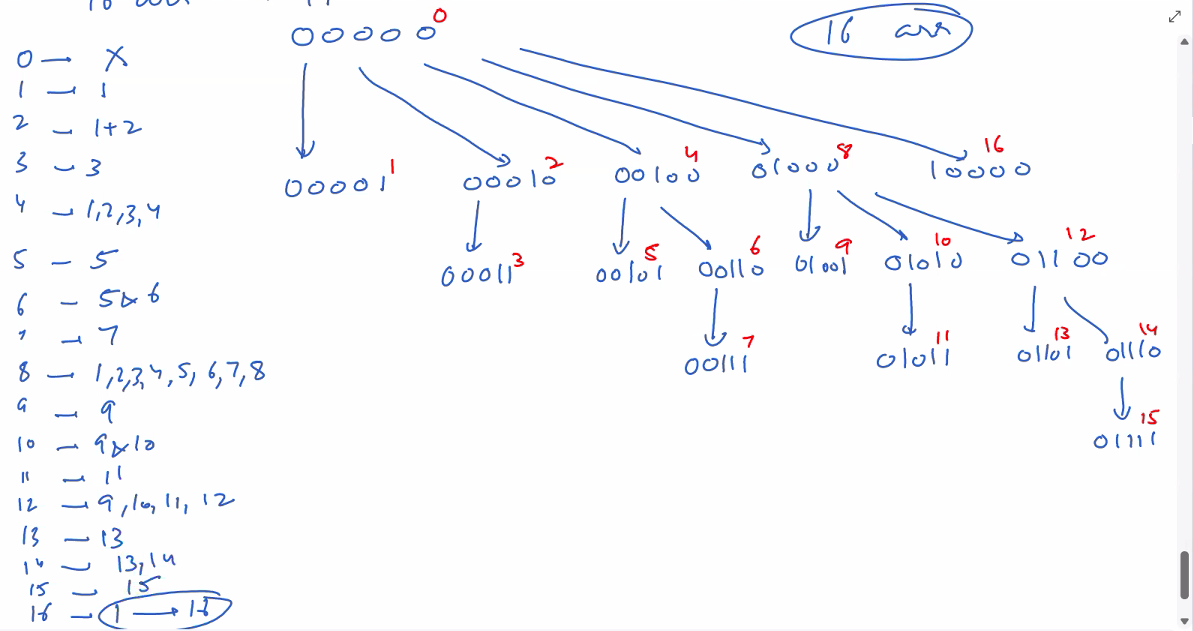 00000 0
16 arr
0 — X
1 — 1
2 — 1+2
3 — 3
4 — 1,2,3,4
5 — 5
6 — 5&6
7 — 7
8 — 1,2,3,4,5,6,7,8
9 — 9
10 — 9&10
11 — 11
12 — 9,10,11,12
13 — 13
14 — 13,14
15 — 15
16 — 1 → 16
00001 1
00010 2
00100 4
01000 8
10000 16
00011 3
00101 5
00110 6
01001 9
01010 10
01100 12
00111 7
01011 11
01101 13
01110 14
01111 15